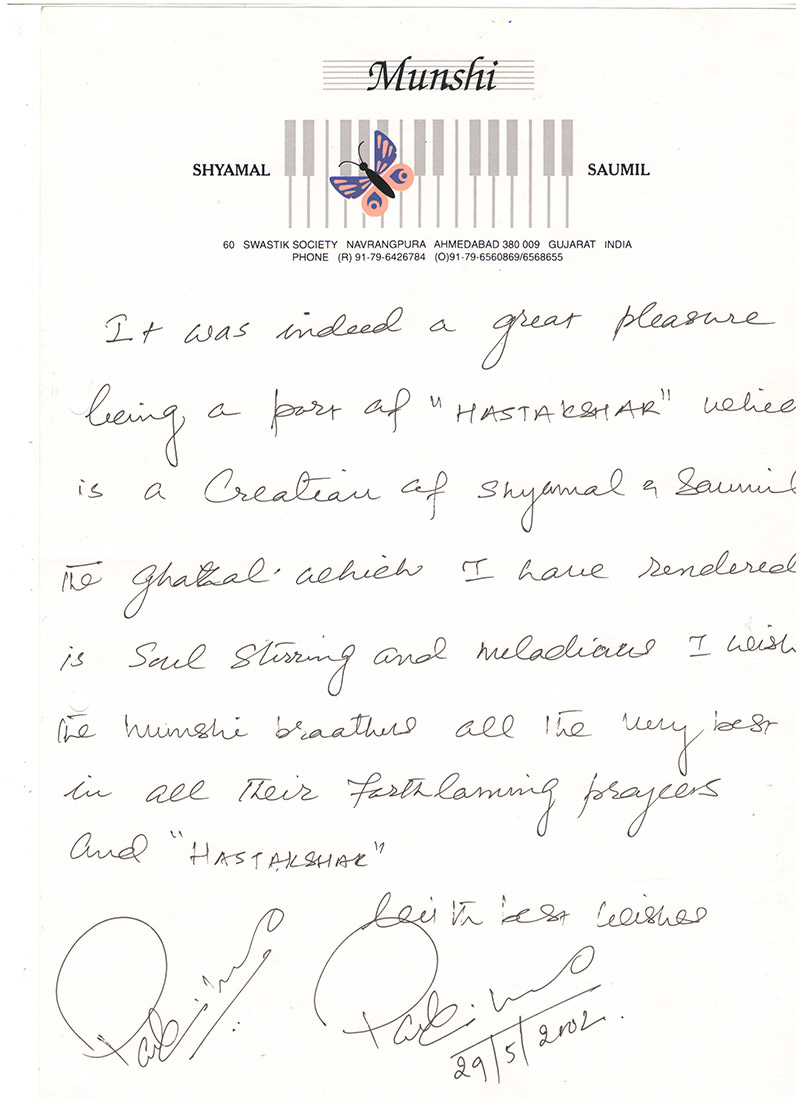 Munshi
SHYAMAL SAUMIL
60 SWASTIK SOCIETY NAVRANGPURA AHMEDABAD 380 009 GUJARAT INDIA
PHONE (R) 91-79-6426784 (O)91-79-6560869/6568655
It was indeed a great pleasure
being a part of "HASTAKSHAR" whic
is a Creation of Shyamal & Saumil
The Ghazal which I have rendered
is Soul Stirring and melodious I wish
the Munshi broathers all the very best
in all their forthcoming
and "HASTAKSHAR"
With best wishes
29/5/2002.